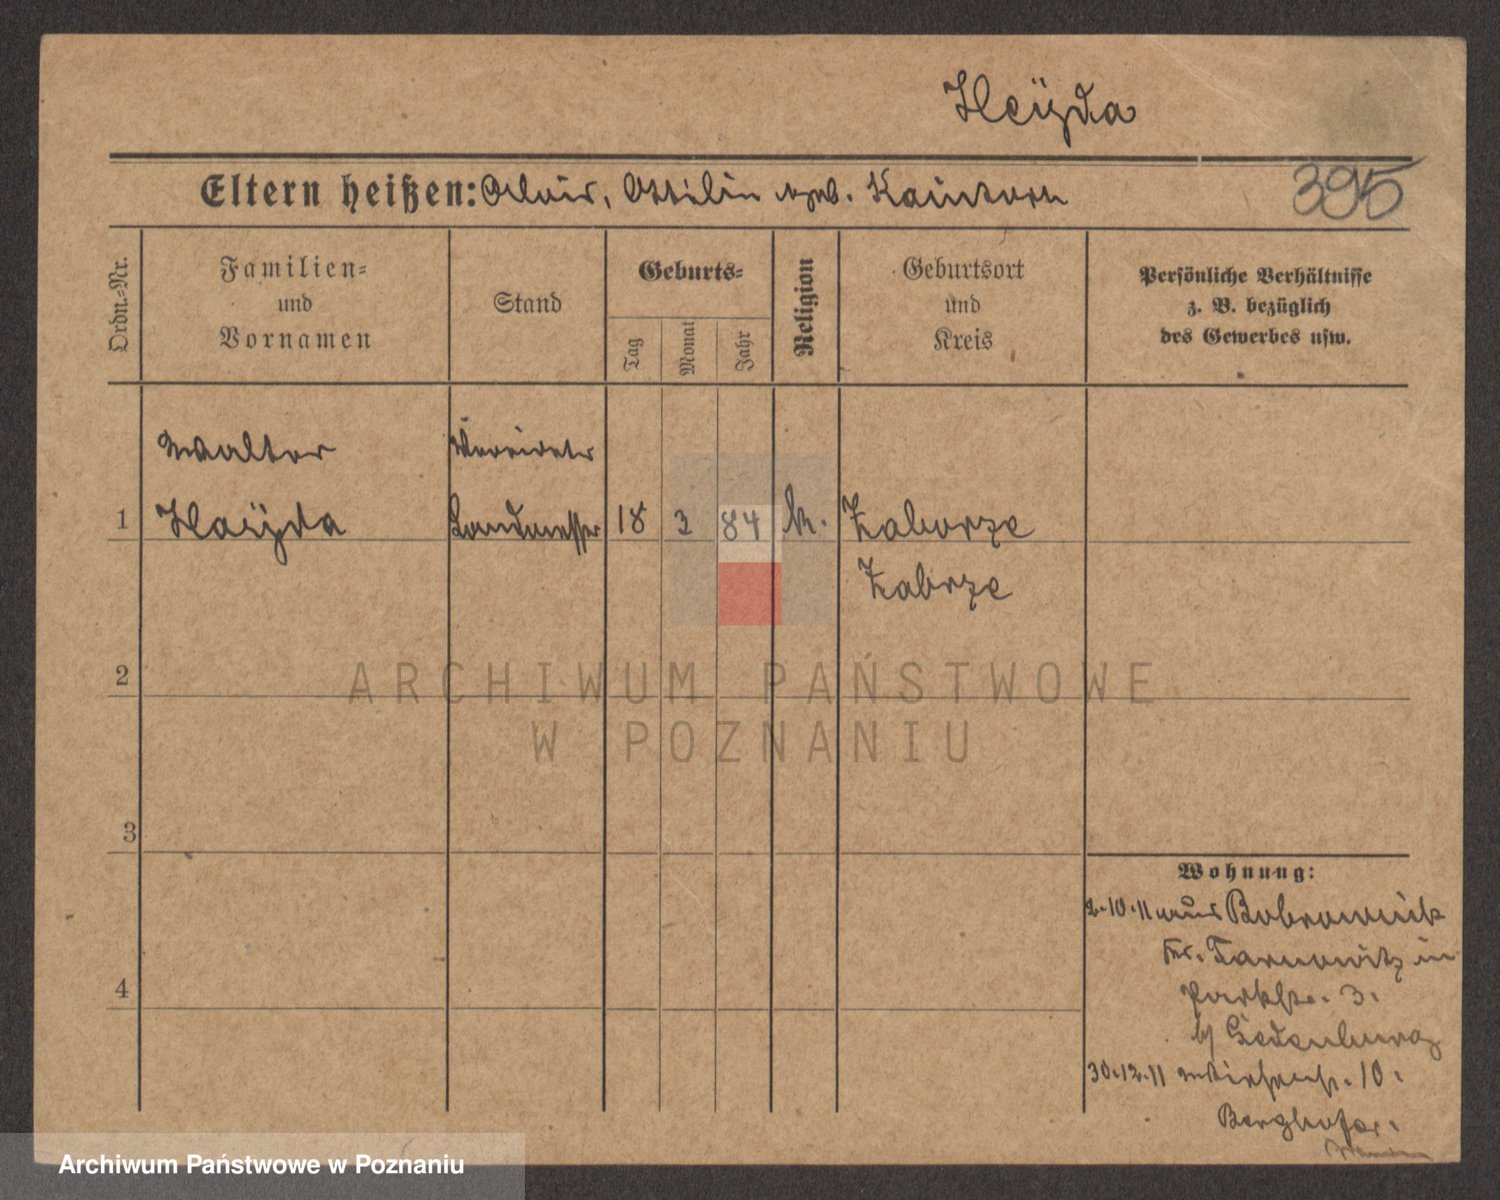 Heÿda
Eltern heißen: Alois, Ottilie geb. Kaintoch
395
Ordn.=Nr.
Familien=
und
Vornamen
Stand
Geburts=
Tag
Monat
Jahr
Religion
Geburtsort
und
Kreis
Persönliche Verhältnisse
z. B. bezüglich
des Gewerbes usw.
Walter
Vereideter
1
Heÿda
Landmesser
18
3
84
k.
Zaborze
Zabrze
2
ARCHIWUM PAŃSTWOWE
W POZNANIU
3
4
Wohnung:
2.10.11 aus Bobrownik
Kr. Tarnowitz in
Parkstr. 3.
b/
30.12.11 10.
Berghofer.
Archiwum Państwowe w Poznaniu